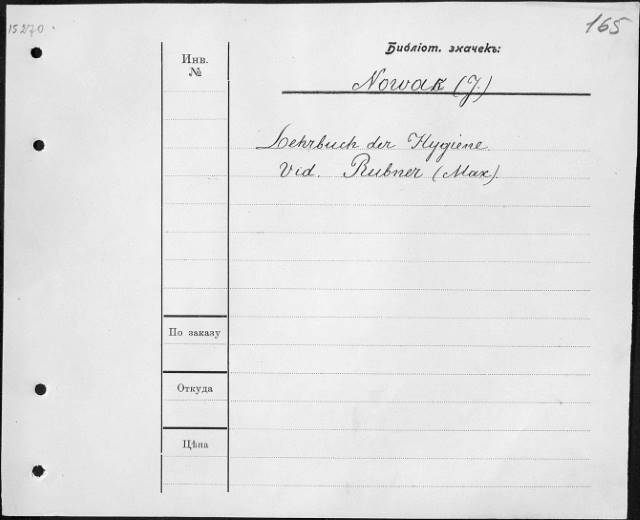 15270
165
Библіот. значекъ:
Инв.
№
Nowak (J.)
Lehrbuch der Hygiene.
Vid. Rubner (Max).
По заказу
Откуда
Цѣна